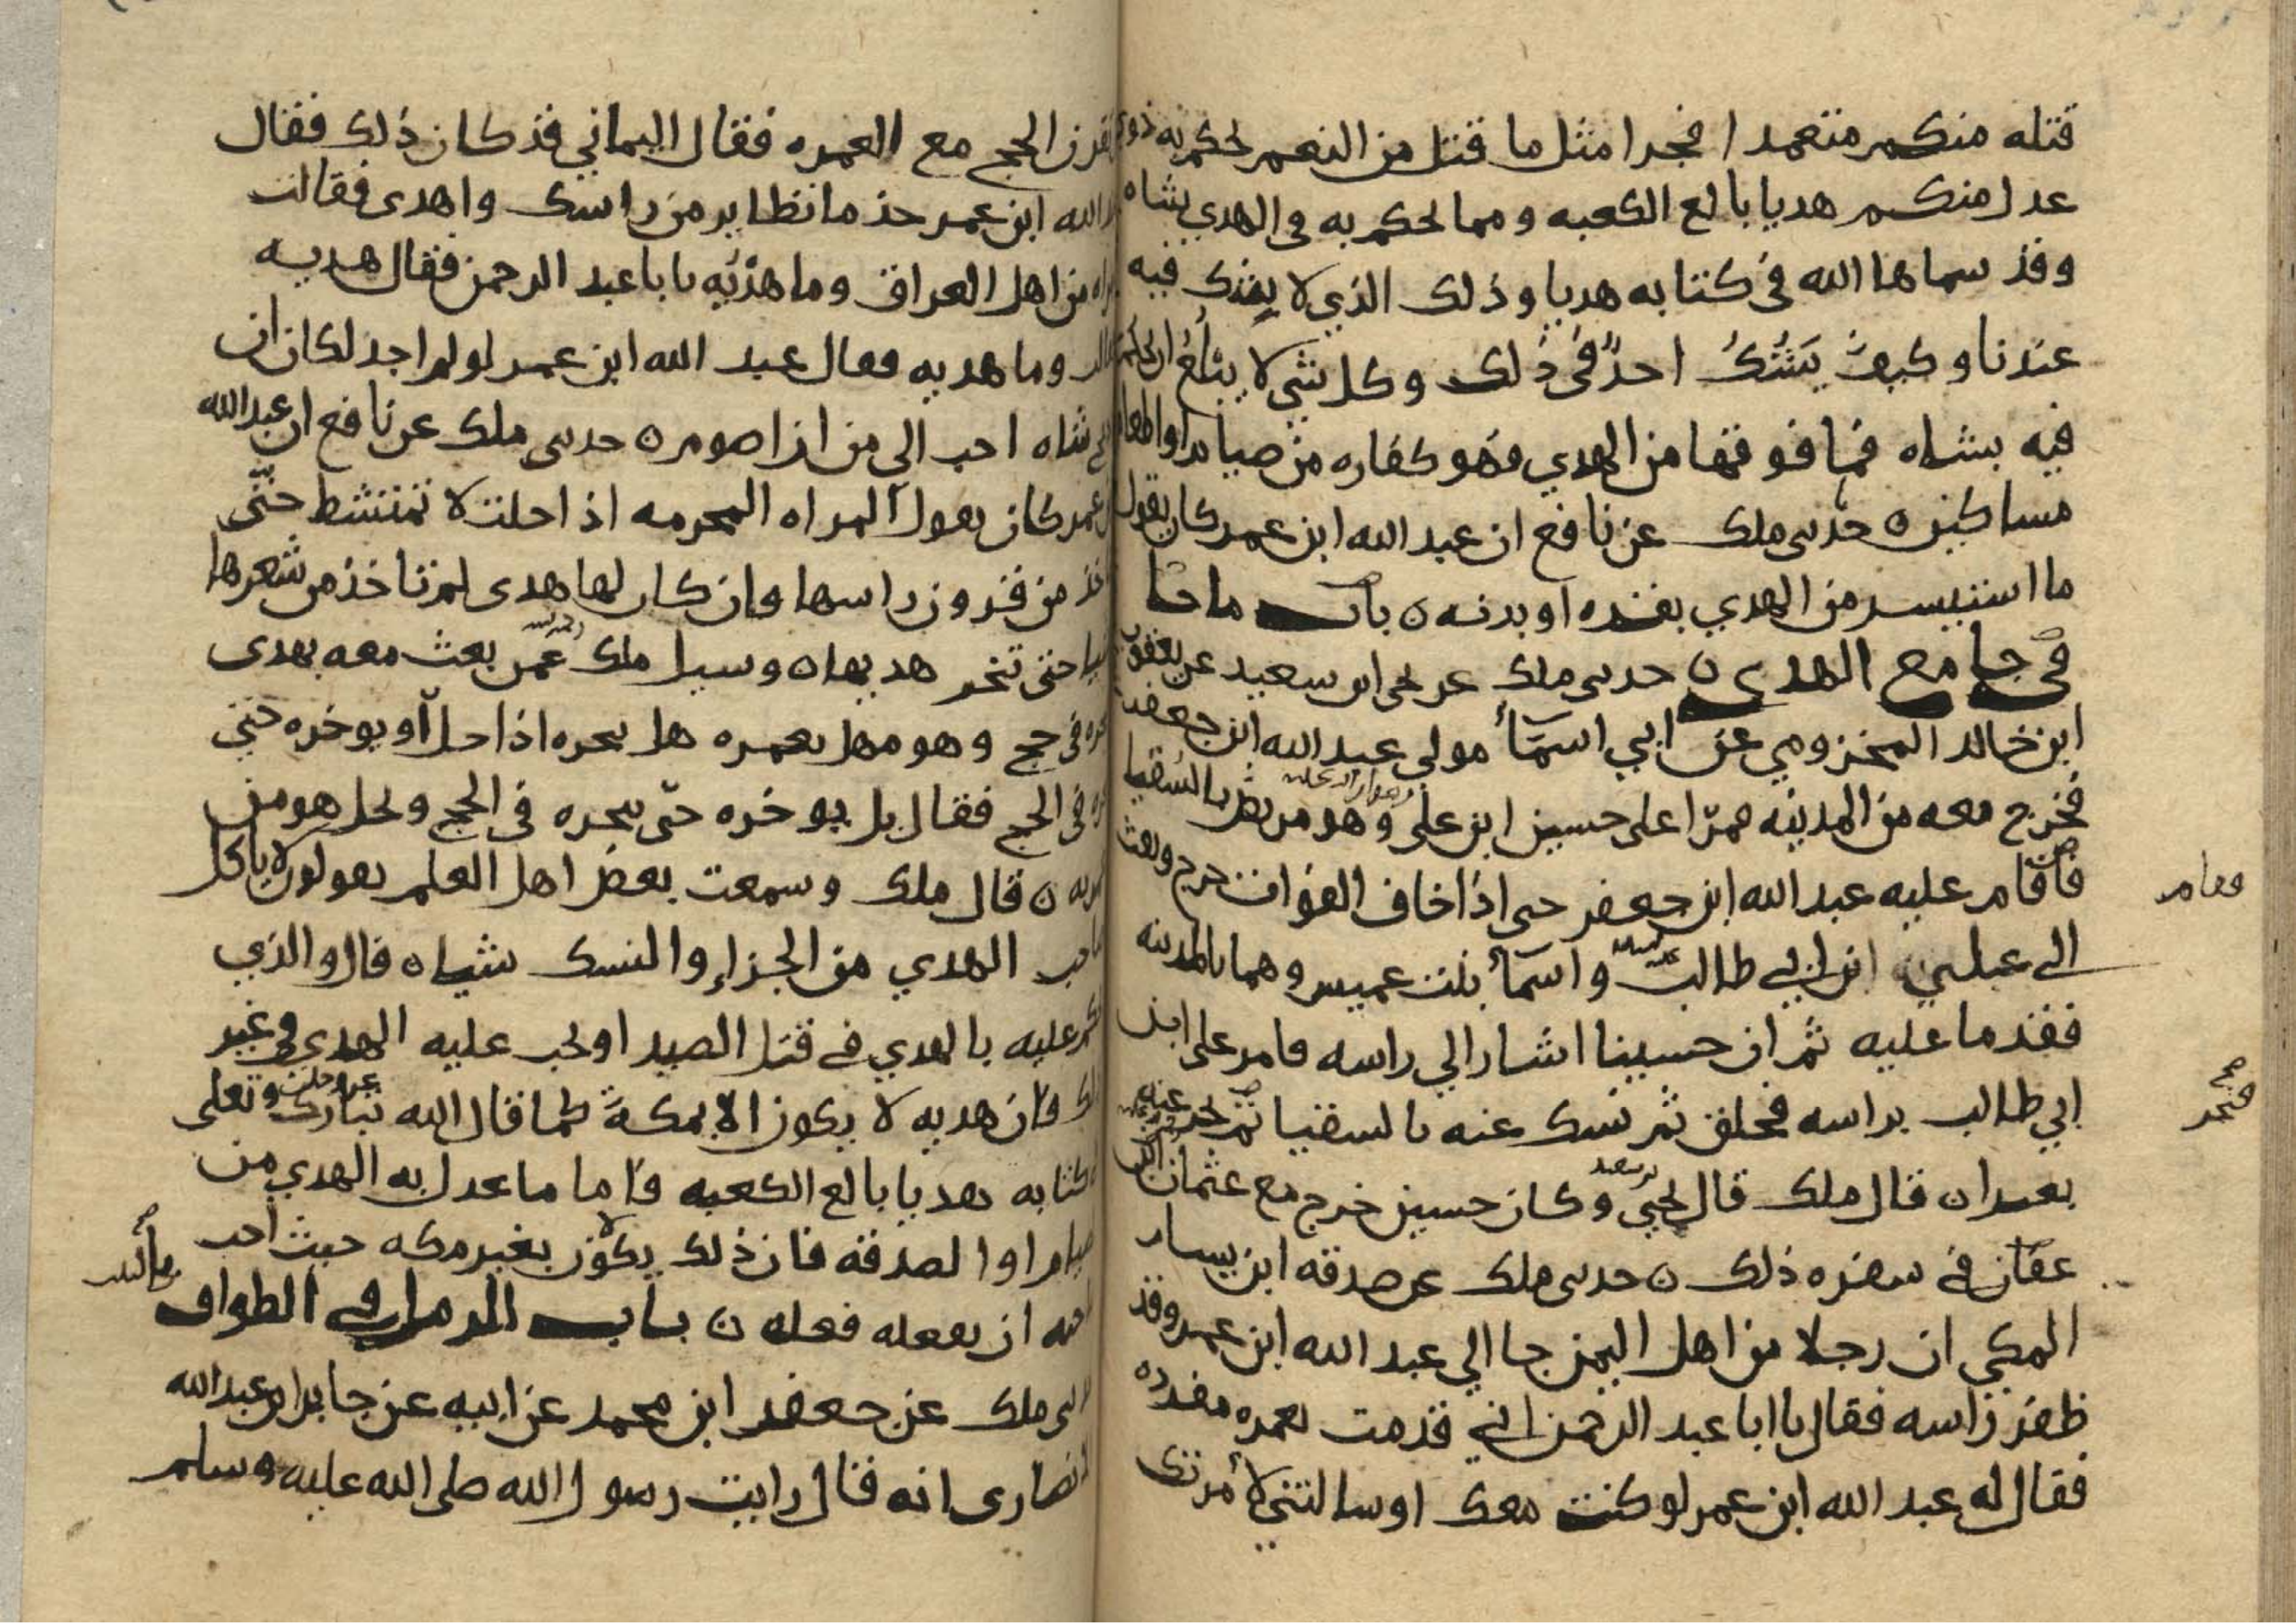 قتله منكم متعمدا فجزا مثل ما قتل من النعم يحكم به ذوي
عدل منكم هديا بالغ الكعبه ومما يحكم به في الهدي شاه
وقد سماها الله في كتابه هديا وذلك الذي لا يشك فيه
عندنا وكيف يَشُكُ احدٌ في ذلك وكل شي لا يبلغ ان يحكم
فيه بشاه فما فوقها من الهدي فهو كفاره من صيام او اطعام
مساكين ه حدثني ملك عن نافع ان عبد الله ابن عمر كان يقول
ما استيسر من الهدي بقره او بدنه ه باب ما جا
في جامع الهدي ه حدثني ملك عن يحيى ابن سعيد عن يعقوب
ابن خالد المخزومي عن ابي اسمآء مولي عبد الله ابن جعفر
فخرج معه من المدينه فمرّا على حسين ابن علي وهو مريض بالسقيا
فاقام عليه عبد الله ابن جعفر حتى اذا خاف الفوات خرج وبعث
فقام
الى علي ابن ابي طالب واسمآء بنت عميس وهما بالمدينه
فقدما عليه ثم ان حسينا اشار الي راسه فامر علي ابن
ابي طالب براسه فحلق ثم نسك عنه بالسقيا ثم نحر عنه
فنحر
صح
بعيرا ه قال ملك قال يحيى بن سعيد وكان حسين خرج مع عثمان ابن
عفان في سفره ذلك ه حدثني ملك عن صدقه ابن يسار
المكي ان رجلا من اهل اليمن جا الي عبد الله ابن عمر وقد
ظفر راسه فقال يا ابا عبد الرحمن اني قدمت بعمره مفرده
فقال له عبد الله ابن عمر لو كنت معك او سالتني لأمرتك
تقرن الحج مع العمره فقال اليماني قد كان ذلك فقال
عبد الله ابن عمر خذ ما تطاير من راسك واهدى فقالت
امراه من اهل العراق وما هدْيُه يابا عبد الرحمن فقال هديه
قالت وما هديه فقال عبد الله ابن عمر لو لم اجد لكان ان
شاه احب الي من ان اصوم ه حدثني ملك عن نافع ان عبد الله
بن عمر كان يقول المراه المحرمه اذا حلت لا تمتشط حتّى
تاخذ من قرون راسها وان كان لها هدى لم تاخذ من شعرها
شيا حتى تنحر هديها ه وسيل ملك عمن بعث معه بهدى
ينحره في حج وهو مهل بعمره هل ينحره اذا حل او يوخره حتى
ينحره في الحج فقال بل يوخره حتّى ينحره في الحج ويحل هو من
عمرته ه قال ملك وسمعت بعض اهل العلم يقولون لا ياكل
صاحب الهدي من الجزاء والنسك شياه قال والذي
يحكم عليه بالهدي في قتل الصيد او يجب عليه الهدي في غير
ذلك فان هديه لا يكون الا بمكة كما قال الله تبارك وتعلى
عز وجل
في كتابه هديا بالغ الكعبه فاما ما عدل به الهدي من
الصيام او الصدقه فان ذلك يكون بغير مكه حيث احب
صاحبه ان يفعله فعله ه باب الرمل في الطواف
حدثني ملك عن جعفر ابن محمد عن ابيه عن جابر ابن عبد الله
الانصارى انه قال رايت رسول الله صلى الله عليه وسلم